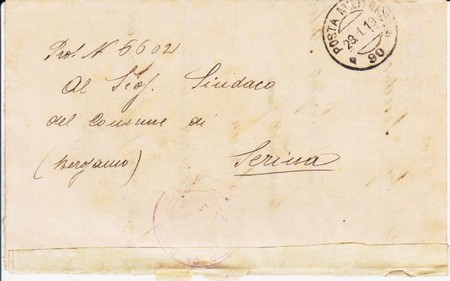 POSTA
28.1.19
90
Prot. N 6602
Al Sig. Sindaco
del Comune di
(Bergamo) Serina